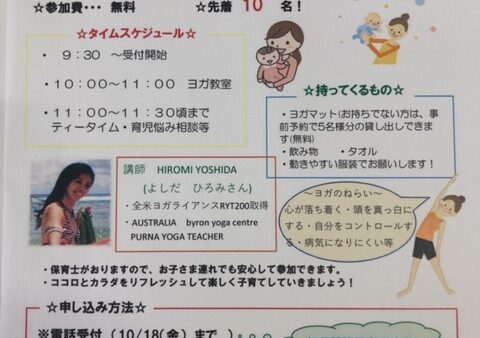 ☆参加費・・・ 無料
☆先着 10 名!
☆タイムスケジュール☆
・ 9:30 ~受付開始
・ 10:00~11:00 ヨガ教室
・ 11:00~11:30頃まで
ティータイム・育児悩み相談等
☆持ってくるもの☆
・ヨガマット(お持ちでない方は、事
前予約で5名様分の貸し出しできま
す(無料)
・飲み物 ・タオル
・動きやすい服装でお願いします!
講師 HIROMI YOSHIDA
(よしだ ひろみさん)
・全米ヨガライアンスRYT200取得
・AUSTRALIA byron yoga centre
PURNA YOGA TEACHER
~ヨガのねらい~
心が落ち着く・頭を真っ白に
する・自分をコントロールす
る・病気になりにくい等
・保育士がおりますので、お子さま連れでも安心して参加できます。
・ココロとカラダをリフレッシュして楽しく子育てしていきましょう!
☆申し込み方法☆
※電話受付(10/18(金)まで )